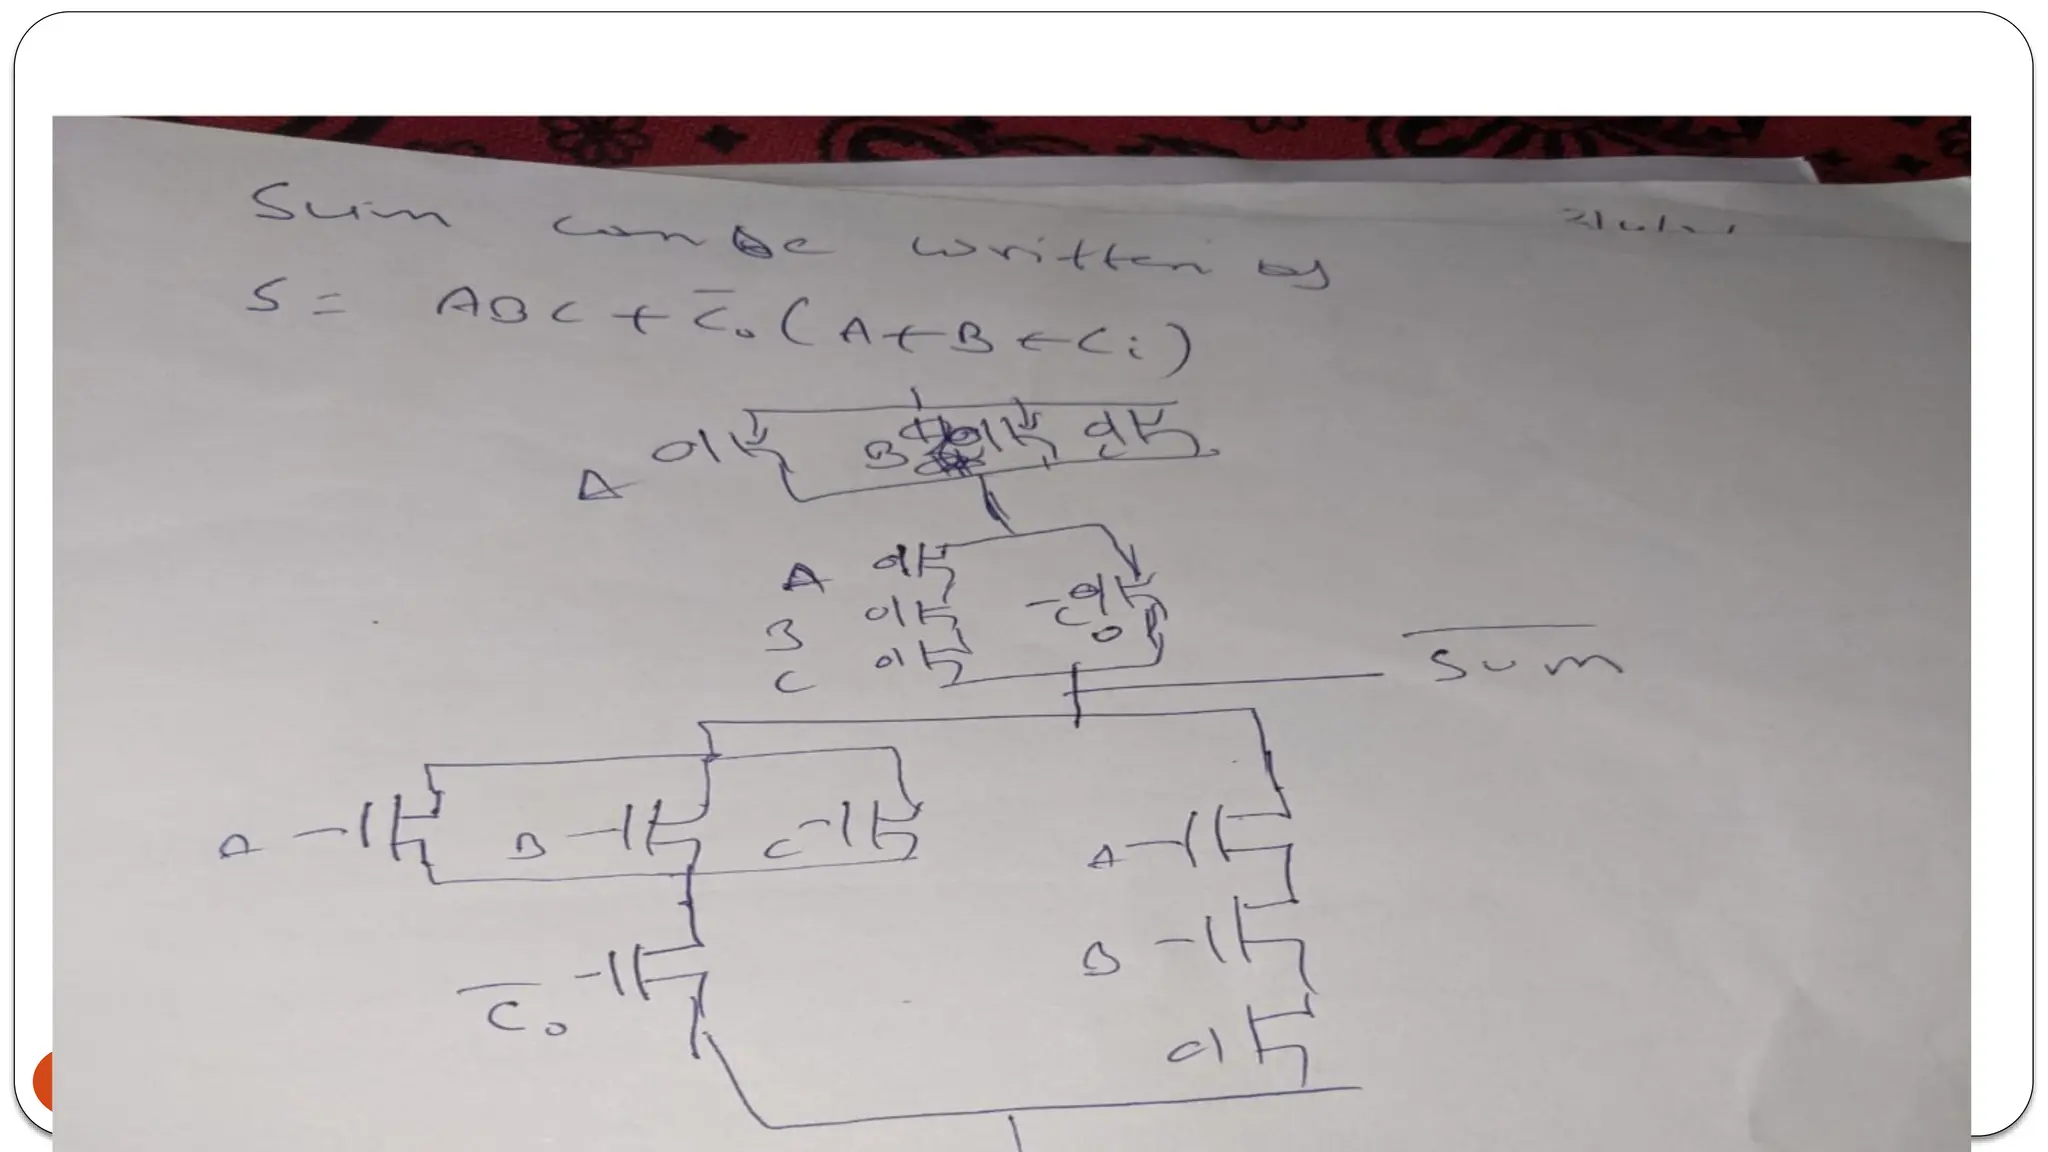 Sum can be written by
S = ABC + C̅o (A + B + Ci)
A B C
A
B C̅o
C
S̅u̅m̅
A B C A
B
C̅o
C